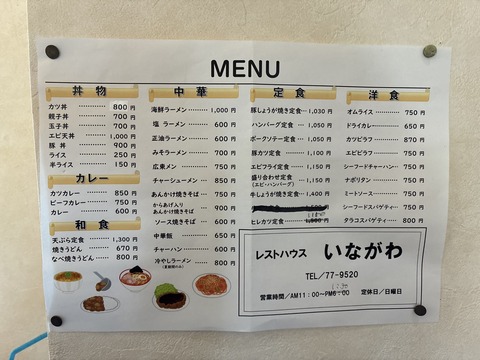 MENU
丼物
カツ丼 ………… 800円
親子丼 ………… 700円
玉子丼 ………… 700円
エビ天丼 ……… 1,000円
豚丼 ………… 900円
ライス ………… 250円
半ライス ……… 150円
カレー
カツカレー …… 850円
ビーフカレー … 750円
カレー ………… 600円
和食
天ぷら定食 …… 1,300円
焼きうどん …… 670円
なべ焼きうどん … 800円
中華
海鮮ラーメン … 1,000円
塩ラーメン …… 600円
正油ラーメン … 600円
みそラーメン … 700円
広東メン ……… 750円
チャーシューメン … 850円
あんかけ焼きそば … 750円
からあげ入り
あんかけ焼きそば … 900円
ソース焼きそば … 600円
中華飯 ………… 650円
チャーハン …… 600円
冷やしラーメン … 800円
(夏期間のみ)
定食
豚しょうが焼き定食 … 1,030円
ハンバーグ定食 … 1,050円
ポークソテー定食 … 1,050円
豚カツ定食 …… 1,100円
エビフライ定食 … 1,150円
盛り合わせ定食 … 1,150円
(エビ・ハンバーグ)
牛しょうが焼き定食 … 1,400円
500円
ヒレカツ定食
洋食
オムライス …… 750円
ドライカレー … 650円
カツピラフ …… 870円
エビピラフ …… 750円
シーフードチャーハン … 750円
ナポリタン …… 750円
ミートソース … 750円
シーフードスパゲティ … 850円
タラコスパゲティ … 800円
レストハウス いながわ
TEL/77-9520
営業時間/AM11:00~PM6:00 定休日/日曜日